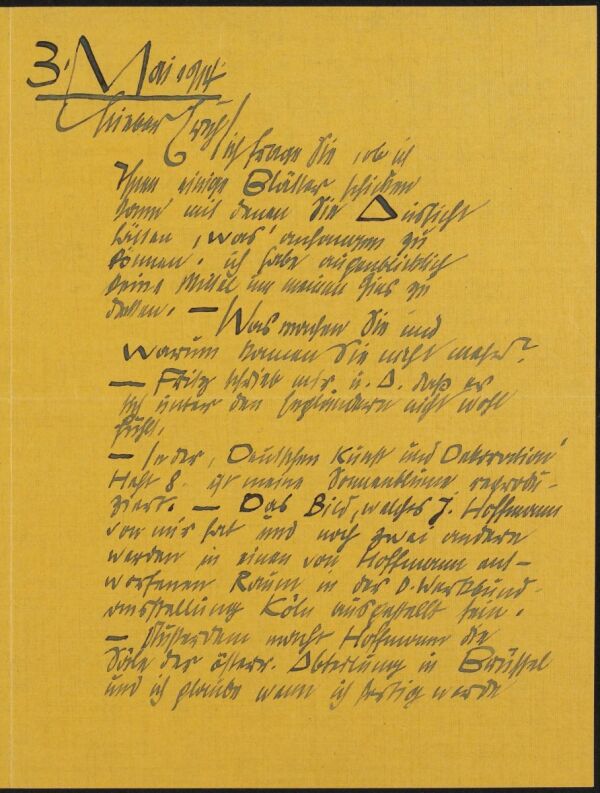 3. Mai 1914.
Lieber Erich!
ich frage Sie, ob ich
Ihnen einige Blätter schicken
kann mit denen Sie Aussicht
hätten, „was" anfangen zu
können. ich habe augenblicklich
keine Mittel um meinen Zins zu
decken. — Was machen Sie und
warum kamen Sie nicht mehr?
— Fritz schrieb mir u. A. daß er
sich unter den Engländern nicht wohl
fühlt.
— In der „Deutschen Kunst und Dekoration"
Heft 8. ist meine Sonnenblume reprodu-
ziert. — Das Bild, welches J. Hoffmann
von mir hat und noch zwei andere
werden in einen von Hoffmann ent-
worfenen Raum in der D. Werkbund-
ausstellung Köln ausgestellt sein.
— Außerdem macht Hoffmann die
Säle der österr. Abteilung in Brüssel
und ich glaube wenn ich fertig werde